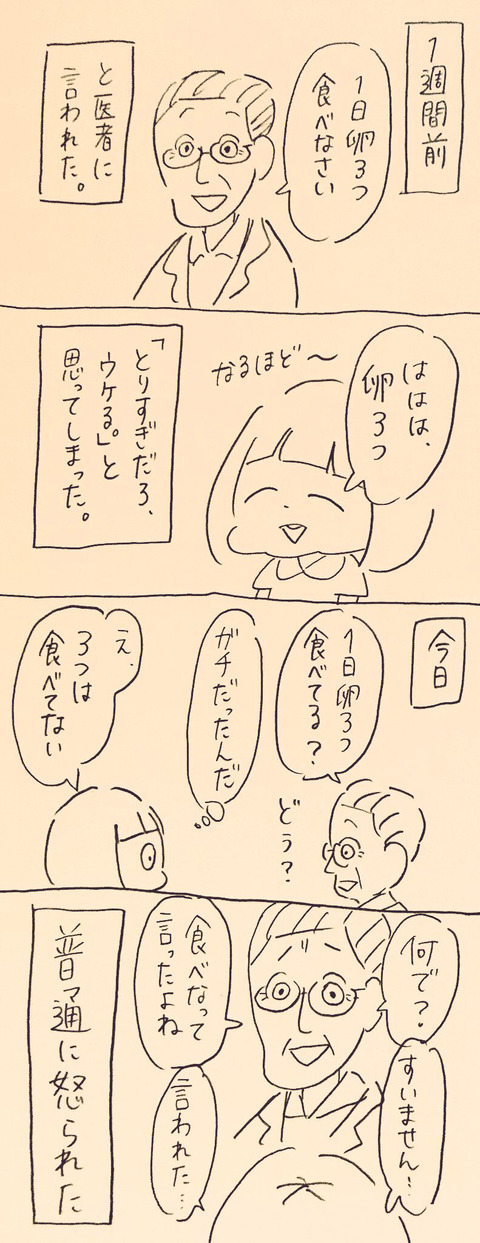 1週間前
1日卵3つ
食べなさい
と医者に
言われた。
ははは、
卵3つ
なるほど〜
「とりすぎだろ、
ウケる。」と
思ってしまった。
今日
1日卵3つ
食べてる?
どう?
ガチだったんだ
え、
3つは
食べてない
何で?
すいません…
食べなって
言ったよね
言われた…
普通に怒られた